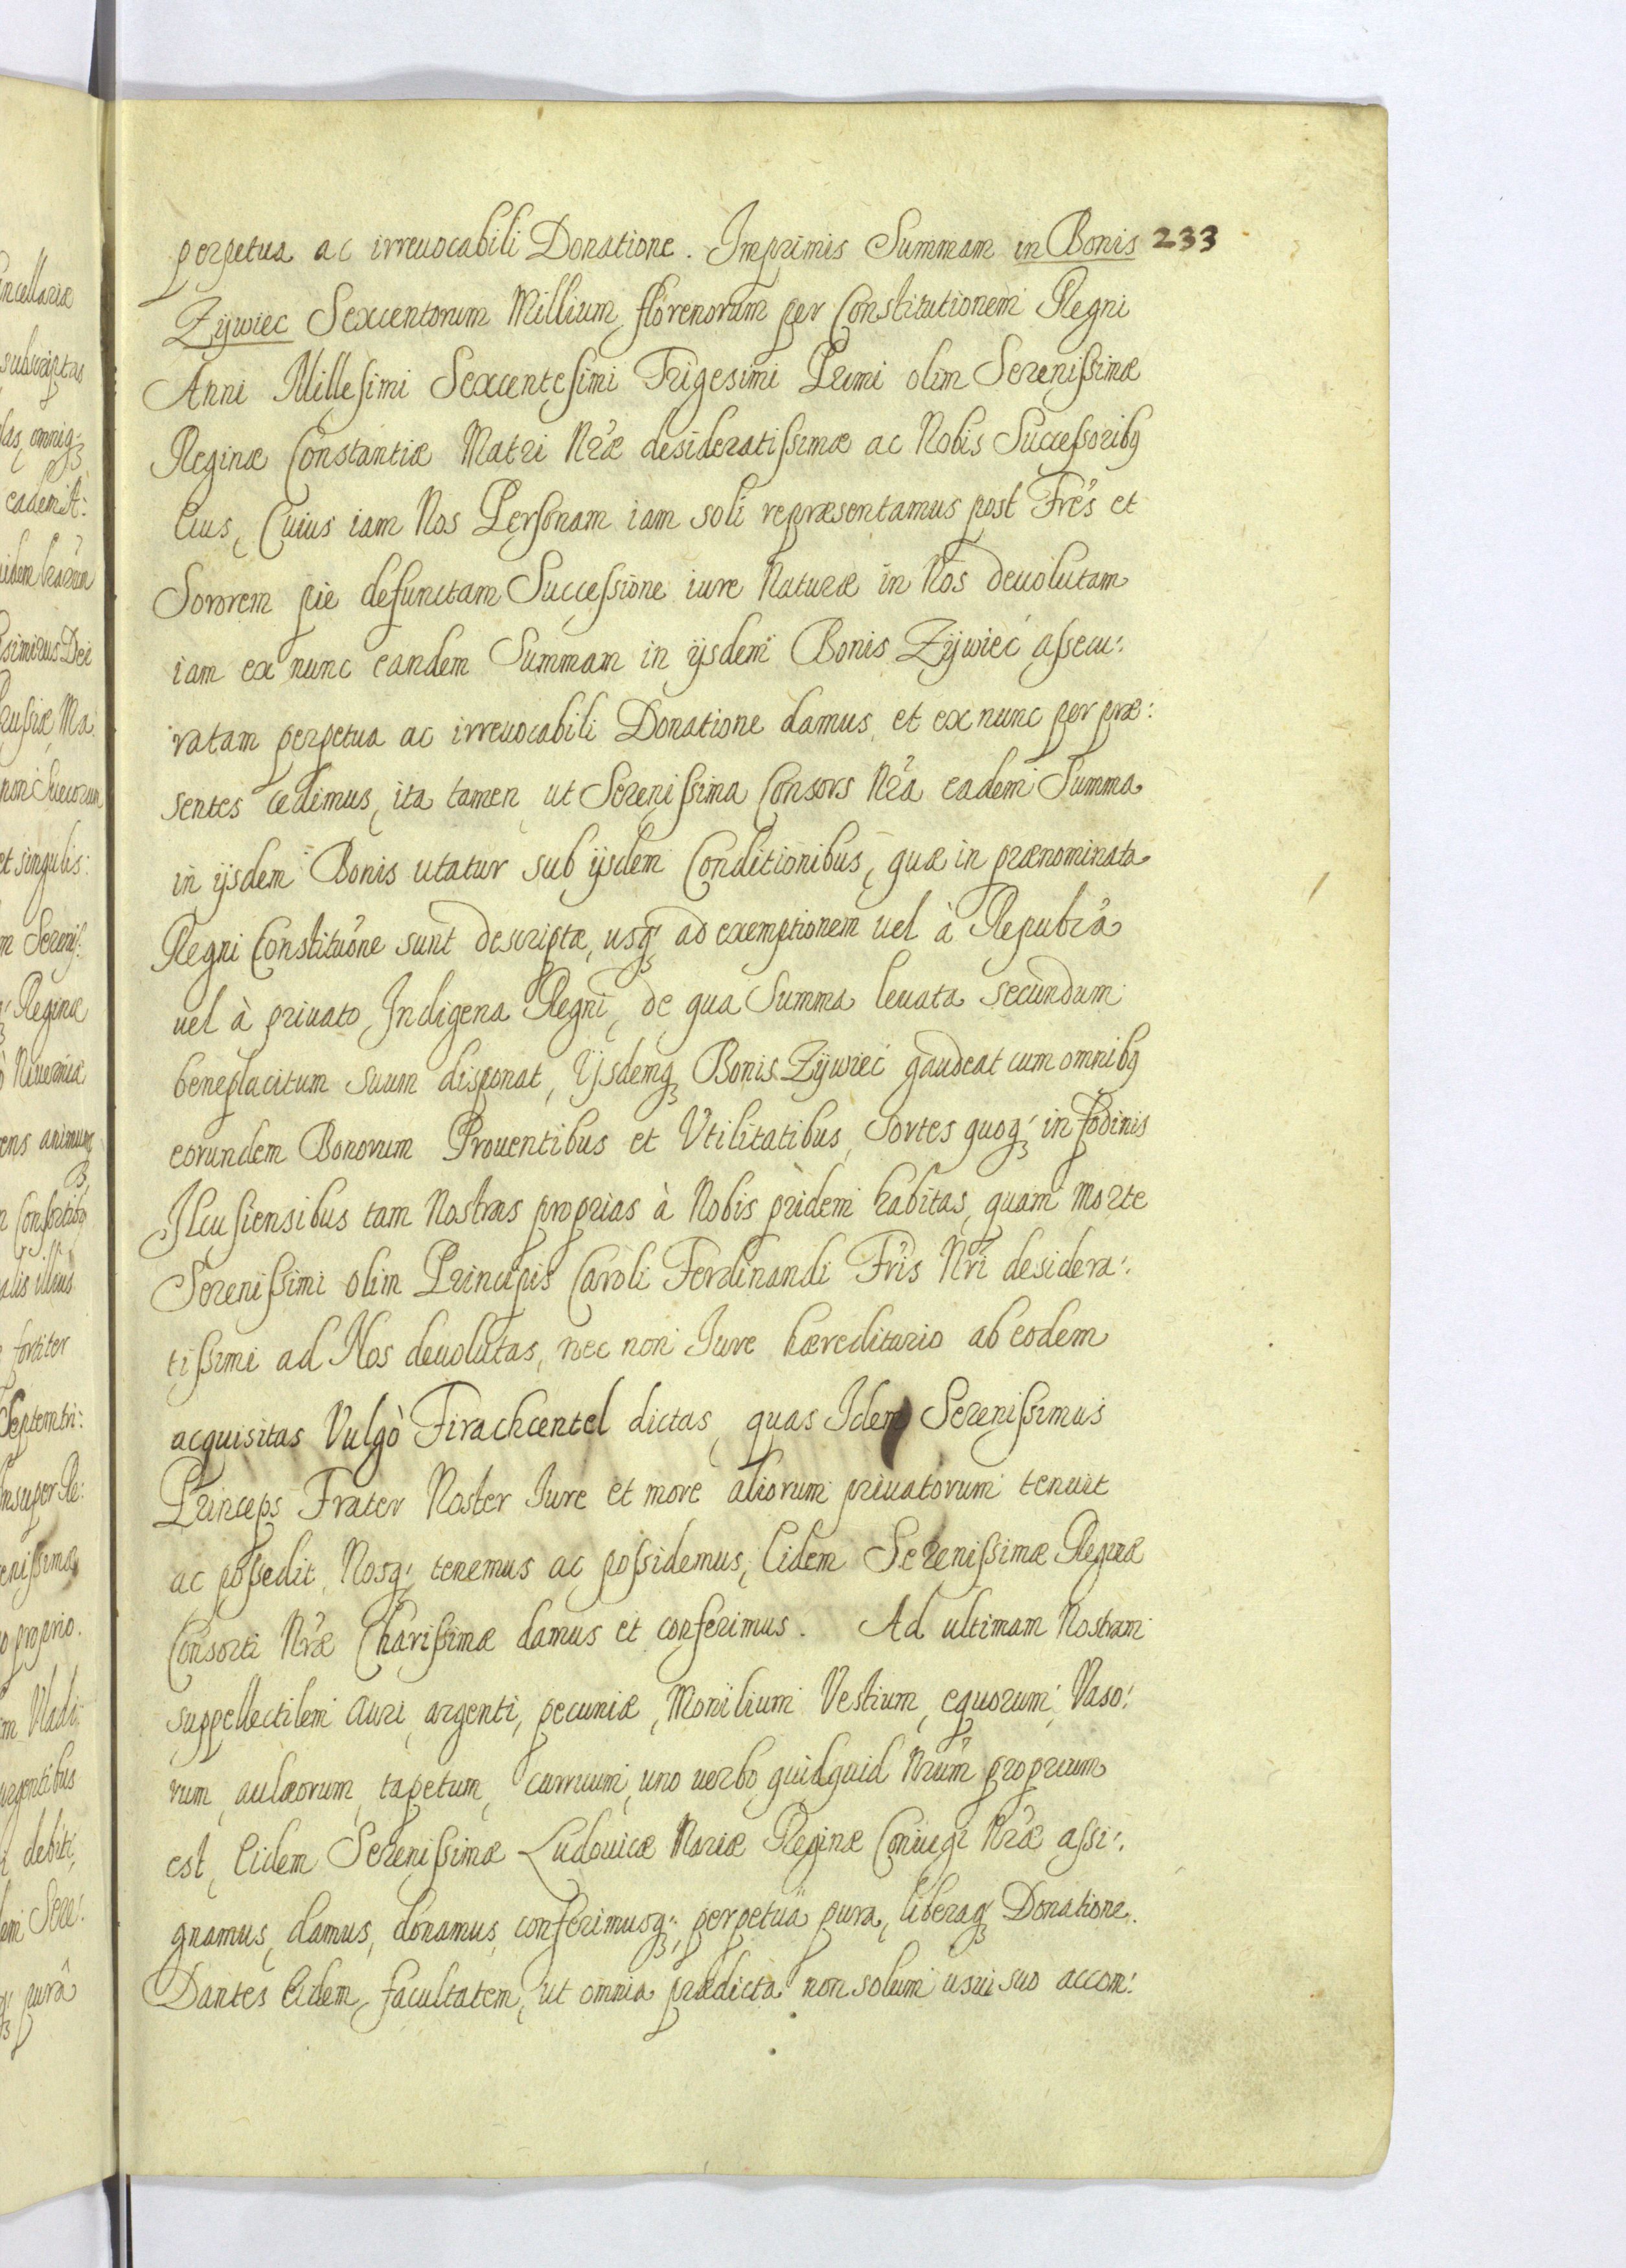 perpetua ac irreuocabili Donatione. Imprimis Summam in Bonis 233
Zÿwiec Sexcentorum Millium florenorum per Constitutionem Regni
Anni Millesimi Sexcentesimi Trigesimi Primi olim Serenissimæ
Reginæ Constantiæ Matri Nr̃æ desideratissimæ ac Nobis Successoribꝰ
Eius, Cuius iam Nos Personam iam soli repræsentamus post Fr̃es et
Sororem pie defunctam Successione iure Naturæ in Nos deuolutam
iam ex nunc eandem Summam in ÿsdem Bonis Zÿwiec assecu:
ratam perpetua ac irreuocabili Donatione damus, et ex nunc per præ:
sentes cedimus, ita tamen ut Serenissima Consors Nr̃a eadem Summa
in ÿsdem Bonis utatur sub ÿsdem Conditionibus, quæ in prænominata
Regni Constitu͠one sunt descriptæ, usqꝫ ad exemptionem uel à Republ̃a
uel à priuato Indigena Regni, de qua Summa leuata secundum
beneplacitum suum disponat, Ÿsdemqꝫ Bonis Zÿwiec gaudeat cum omnibꝰ
eorundem Bonorum Prouentibus et Vtilitatibus, Sortes quoqꝫ in fodinis
Ilcusiensibus tam Nostras proprias à Nobis pridem habitas, quam morte
Serenissimi olim Principis Caroli Ferdinandi Fr̃is Nr̃i desidera:
tissimi ad Nos deuolutas, nec non Iure hæreditario ab eodem
acquisitas Vulgò Firachcentel dictas, quas Idem Serenissimus
Princeps Frater Noster Iure et more aliorum priuatorum tenuit
ac possedit, Nosqꝫ tenemus ac possidemus, Eidem Serenissimæ Reg̃næ
Consorti Nr̃æ Charissimæ damus et conferimus. Ad ultimam Nostram
suppellectilem Auri, argenti, pecuniæ, Monilium Vestium, equorum, Vaso:
rum, aulæorum, tapetum, curruum, uno uerbo quidquid Nr̃um proprium
est, Eidem Serenissimæ Ludouicæ Mariæ Reginæ Coniugi Nr̃æ assi:
gnamus, damus, donamus, conferimusqꝫ, perpetua pura, liberaqꝫ Donatione.
Dantes Eidem facultatem, ut omnia prædicta non solum usui suo accom: